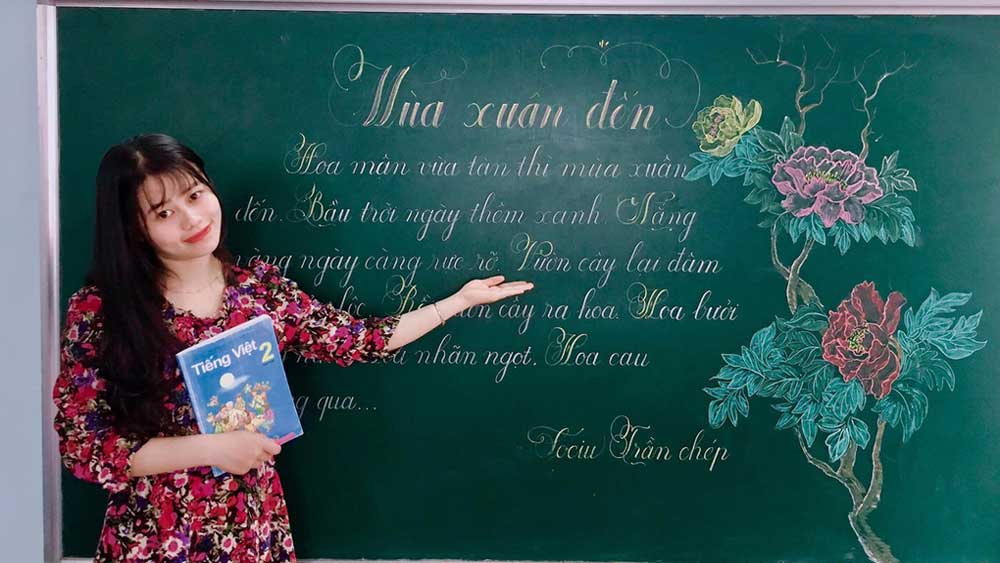 Mùa xuân đến
Hoa mận vừa tàn thì mùa xuân
đến. Bầu trời ngày thêm xanh. Nắng
ngày càng rực rỡ. Vườn cây lại đâm
cây ra hoa. Hoa bưởi
nhãn ngọt. Hoa cau
qua...
Trần chép
Tiếng Việt 2